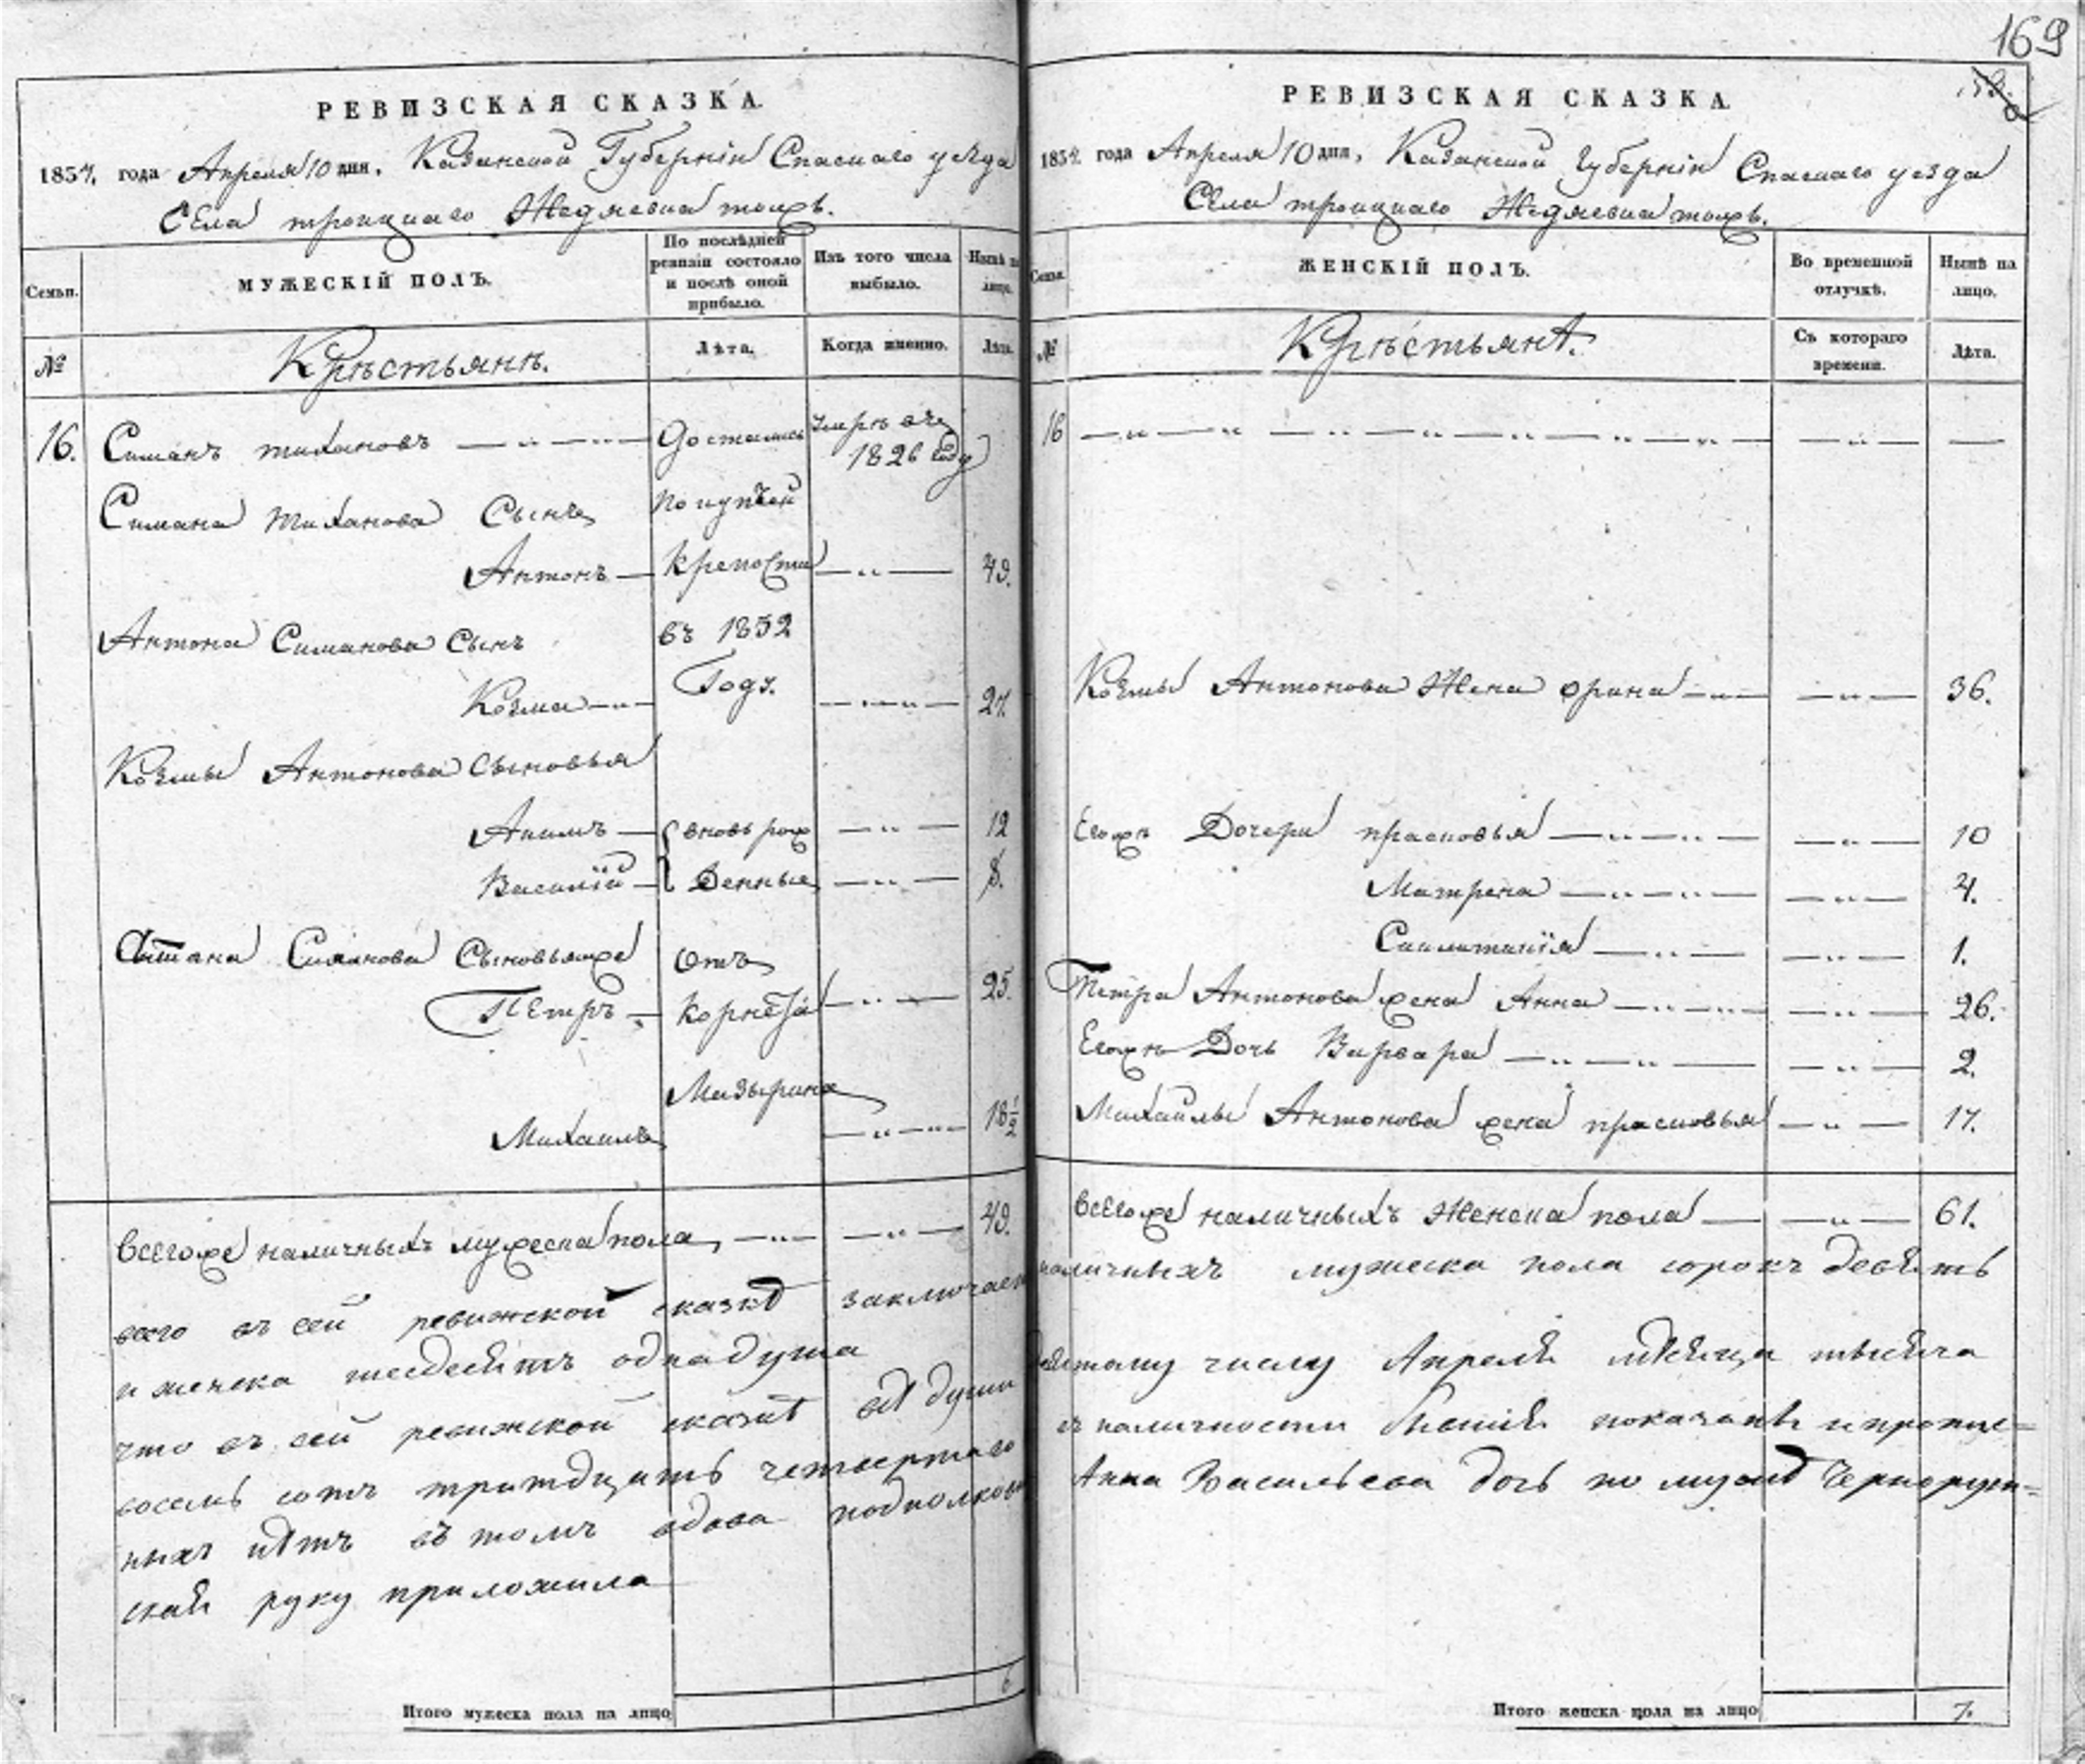 169
РЕВИЗСКАЯ СКАЗКА.
1834. года Апреля 10 дня. Казанской Губернiи Спаскаго уѣзда
Села троицкаго тожъ.
Семьи.
МУЖЕСКIЙ ПОЛЪ.
По послѣдней ревизiи состояло и послѣ оной прибыло.
Изъ того числа выбыло.
Нынѣ на лицо.
№
Крѣстьянѣ.
Лѣта.
Когда именно.
Лѣта.
16. Симанъ тихановъ — „ — „ — Достались умрѣ 1826 году
Симана Тиханова Сынъ по купчей
Антонъ — крепости — „ — 49.
Антона Симанова Сынъ въ 1832
Козма — „ — Году. — „ — „ — 27.
Козмы Антонова Сыновья
Акимъ — вновь рож — „ — 12
Василiй — денные — „ — 8.
Симанова Сыновьяже отъ
ПЕтръ — Корнета — „ — 25.
Мазырина
Михаилъ — „ — 18½
всегоже наличныхъ мужеска пола — „ — — „ — 49.
всего въ сей ревижской сказкѣ заключает
и женска шесдесятъ одна душа
что въ сей ревижской сказкѣ всѣ души
восемь сотъ тритдцать четвертаго
ныхъ нѣтъ въ томъ вдова подполков
ская руку приложила
Итого мужеска пола на лицо 6
РЕВИЗСКАЯ СКАЗКА.
1834. года Апреля 10 дня, Казанской Губернiи Спаскаго уезда
Села троицкаго тожъ.
Семьи.
ЖЕНСКIЙ ПОЛЪ.
Во временной отлучкѣ.
Нынѣ на лицо.
№
Крѣстьянѣ.
Съ котораго времени.
Лѣта.
16 — „ — „ — „ — „ — „ — „ — — „ — —
Козмы Антонова Жена орина — „ — — „ — 36.
Егожъ Дочери прасковья — „ — „ — — „ — 10
Матрена — „ — „ — — „ — 4.
— „ — — „ — 1.
Петра Антонова жена Анна — „ — „ — — „ — 26.
Егожъ Дочь Варвара — „ — „ — — „ — 2.
Михайлы Антонова жена прасковья — „ — 17.
всегоже наличныхъ Женска пола — — „ — 61.
наличныхъ мужеска пола сорокъ девять
десятому числу Апреля мѣсяца тысяча
въ наличности показаны и пропис=
Анна Васильева дочь по мужѣ
Итого женска пола на лицо 7.